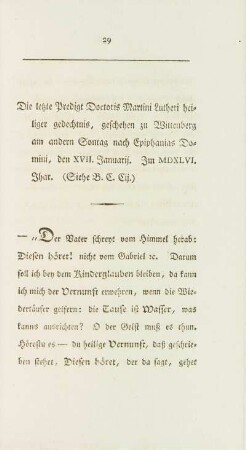 29
Die letzte Predigt Doctoris Martini Lutheri hei-
liger gedechtnis, geschehen zu Wittenberg
am andern Sontag nach Epiphanias Do-
mini, den XVII. Januarij. Im MDXLVI.
Jhar. (Siehe B. C. Cij.)
— „Der Vater schreyt vom Himmel herab:
Diesen höret! nicht vom Gabriel ꝛc. Darum
soll ich bey dem Kinderglauben bleiben, da kann
ich mich der Vernunft erwehren, wenn die Wie-
dertäufer geifern: die Taufe ist Wasser, was
kanns ausrichten? O der Geist muß es thun.
Hörestu es — du heilige Vernunft, daß geschrie-
ben stehet, Diesen höret, der da sagt, gehet